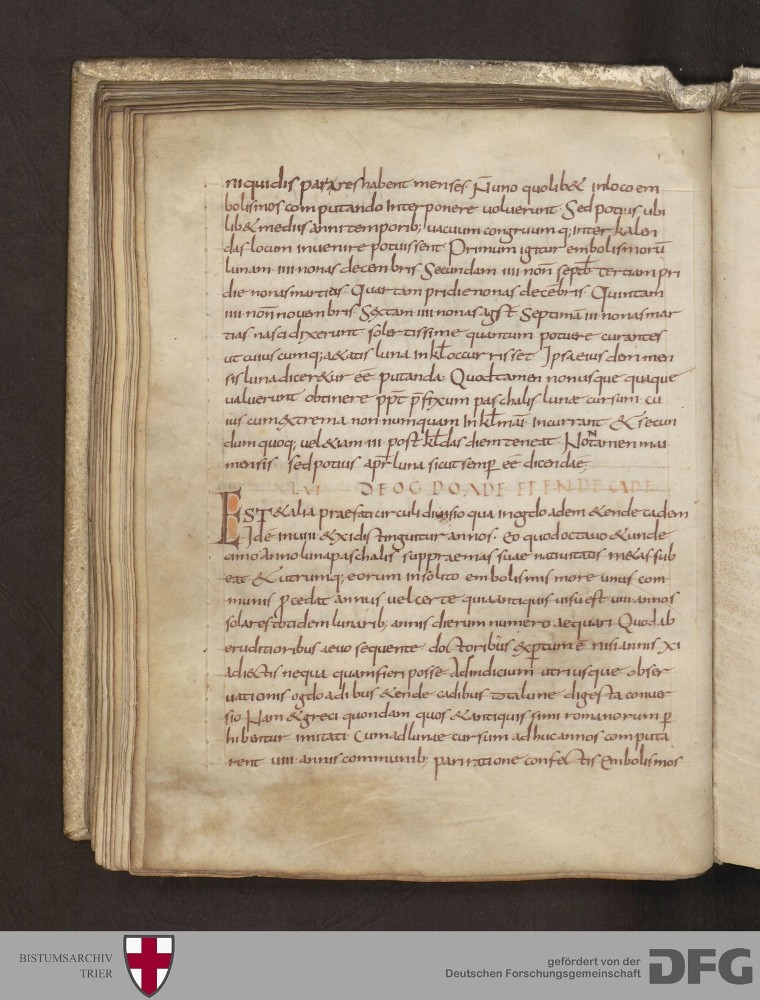 ni quidis pares habent menses. N̄ uno quolib& in loco em
bolismos computando Interponere uoluerunt. Sed potius ubi
lib& mediis anni temporib; uacuum congruumq; inter kalen
das locum inuenire potuissent. Primum igitur embolismorū
lunam iiii nonas decembris. Secundam iiii noñ septb̄ tertiam pri
die nonas martias. Quartam pridie nonas decēbris. Quintam
iiii noñ nouembris. Sextam iiii nonas agst̄ Septimā iii nonas mar
tias nasci dixerunt. sollertissime quantum potuere curantes
ut cuiuscumq; a&atis luna in kł occurrisset. Ipsa eius dem men
sis luna dicer&ur ēē putanda. Quod tamen non usque quaque
ualuerunt obtinere pp̄t p̄fixum paschalis lunae cursum. cu
ius cum extrema non numquam In kł mai incurrant. & secun
dum quoq; uel &iam iii post kłdas diem teneat. Non tamen mai
mensis. sed potius apr̄ luna sicut semp̄ ēē dicendaē;
XLVI DE OGDOADE ET ENDECADE
Est &alia praefati circuli diuisio qua in ogdoadem & endecadem
Idē in uiii & xi distinguitur annos. eo quod octauo & unde
cimo anno luna paschalis suppraemas suae natiuitatis m&as sub
eat. & utrumq; eorum insolito embolismis more unus com
munis p̄cedat annus uel certe quia antiquis uisū est uiii annos
solares totidem lunarib; annis dierum numero aequari. Quod ab
eruditioribus aeuo sequente doctoribus exceptum ē nisi annis xi
adiectis nequaquam fieri posse. Ad indicium utriusque obser
uationis ogdoadibus & endecadibus tota lune digesta conuer
sio. Nam & greci quondam quos & antiquissimi romanorum p̄
hibentur imitati. Cum ad lunae cursum adhuc annos computa
rent uiii annis communib; pari ratione confectis Embolismos
BISTUMSARCHIV
TRIER
gefördert von der
Deutschen Forschungsgemeinschaft
DFG